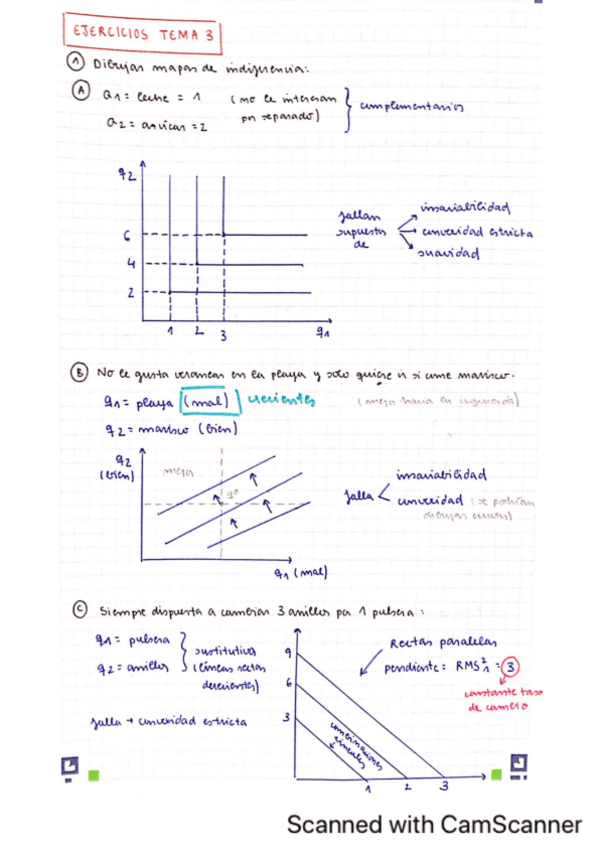 EJERCICIOS TEMA 3
① Dibujar mapas de indiferencia:
Ⓐ Q1 = leche = 1 (no le interesan por separado) } complementarios
Q2 = azúcar = 2
q2
6
4
2
1 2 3 q1
fallan supuestos de
insaciabilidad
convexidad estricta
suavidad
Ⓑ No le gusta veranear en la playa y solo quiere ir si come marisco.
q1 = playa (mal) crecientes (mejor hacia la izquierda)
q2 = marisco (bien)
q2 (bien)
mejor
q0
q1 (mal)
falla
insaciabilidad
convexidad (se podrían dibujar curvas)
Ⓒ Siempre dispuesta a cambiar 3 anillos por 1 pulsera:
q1 = pulsera
q2 = anillos
sustitutivos (líneas rectas decrecientes)
falla → convexidad estricta
9
6
3
1 2 3
combinaciones lineales
Rectas paralelas
pendiente: RMS = 3
constante tasa de cambio
Scanned with CamScanner